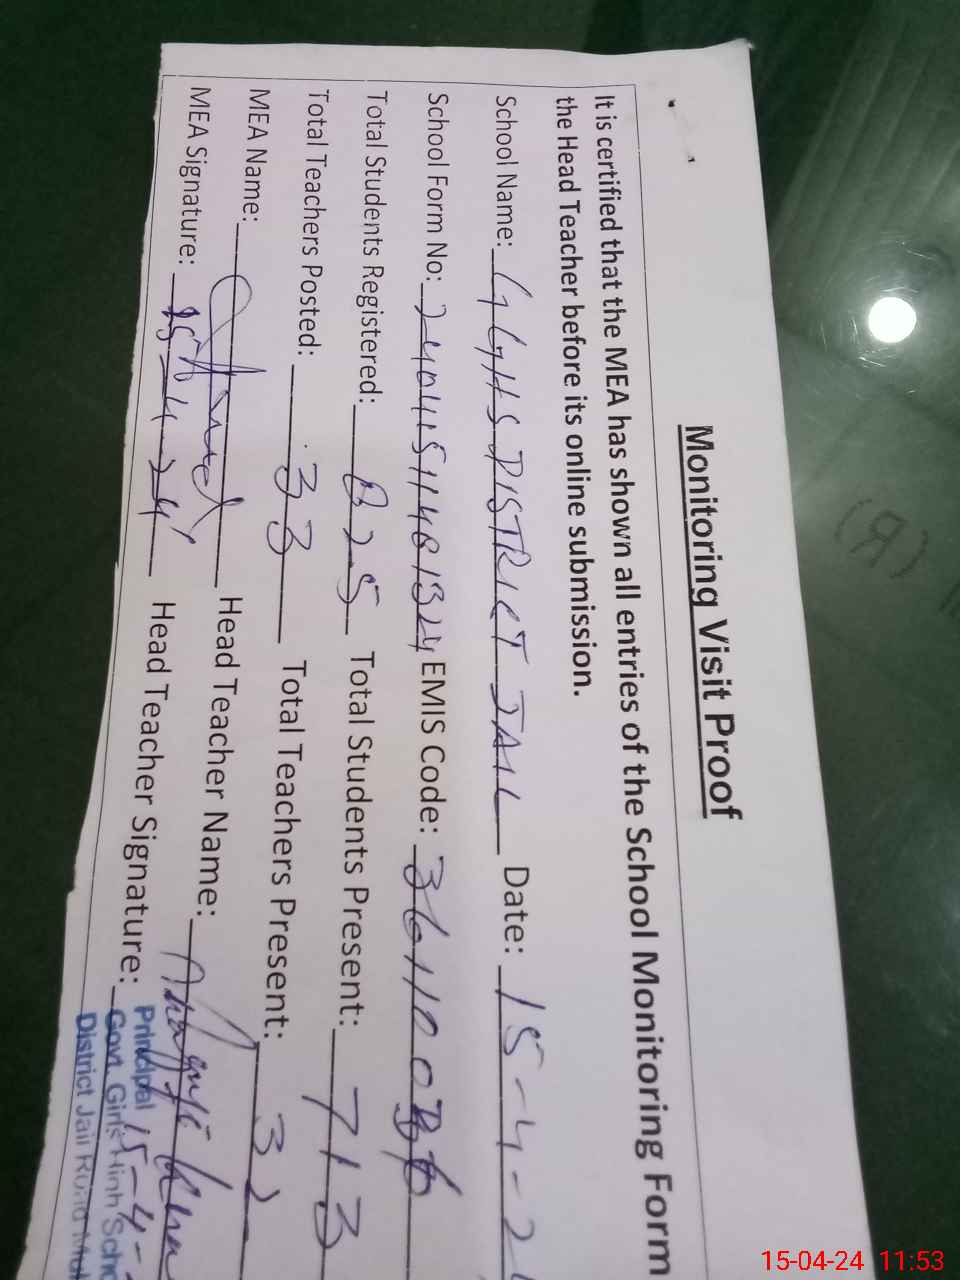 Monitoring Visit Proof
It is certified that the MEA has shown all entries of the School Monitoring Form
the Head Teacher before its online submission.
School Name: GGHS DISTRICT JAIL Date: 15-4-2
School Form No: EMIS Code:
Total Students Registered: 825 Total Students Present: 713
Total Teachers Posted: 33 Total Teachers Present: 32
MEA Name: Head Teacher Name:
MEA Signature: 15-4-24 Head Teacher Signature:
Principal 15-4-
Govt. Girls High Scho
District Jail Road Mul
15-04-24 11:53